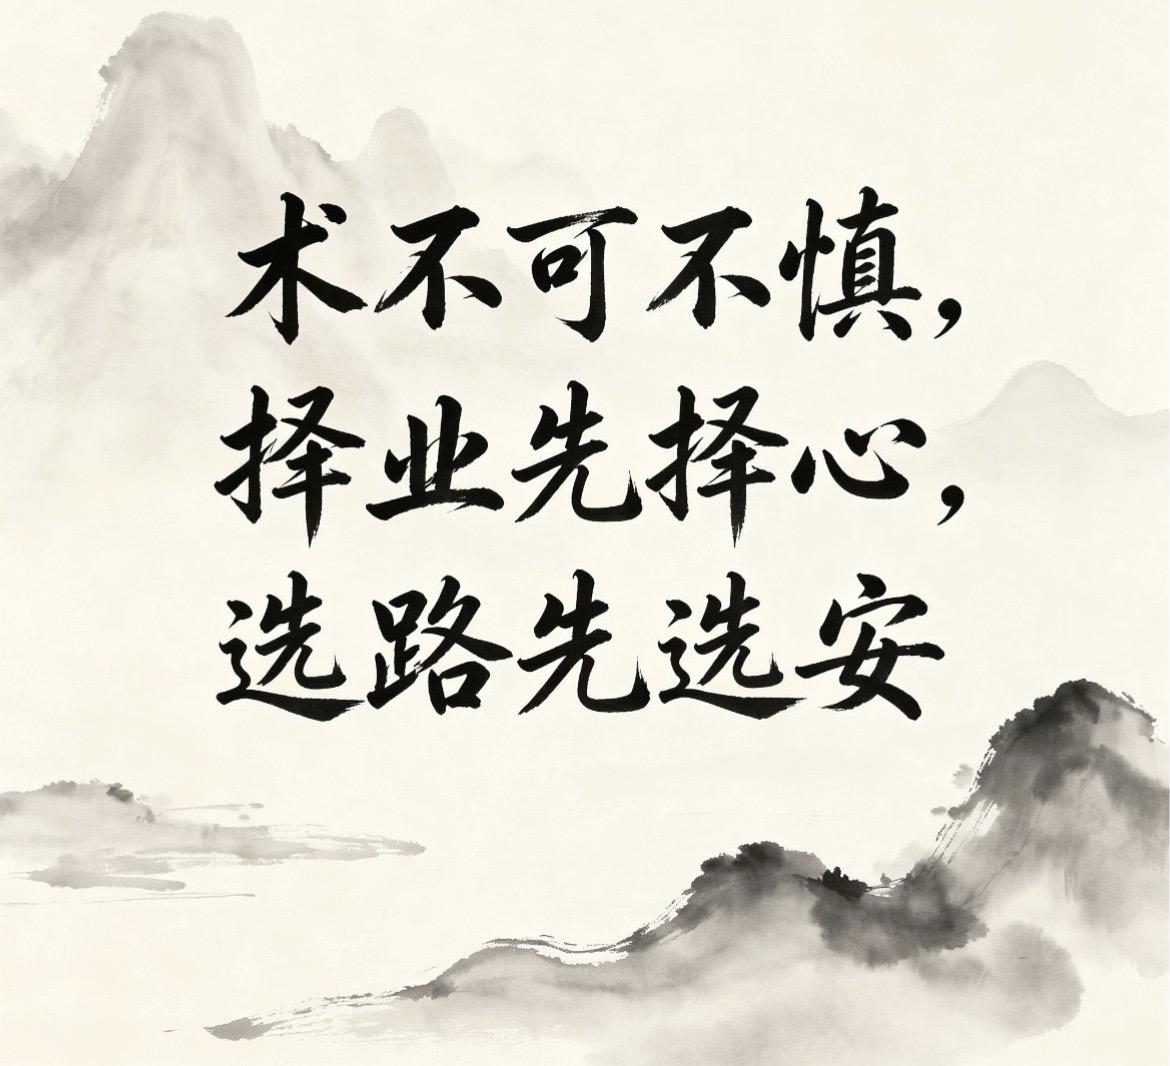 术不可不慎，
择业先择心，
选路先选安